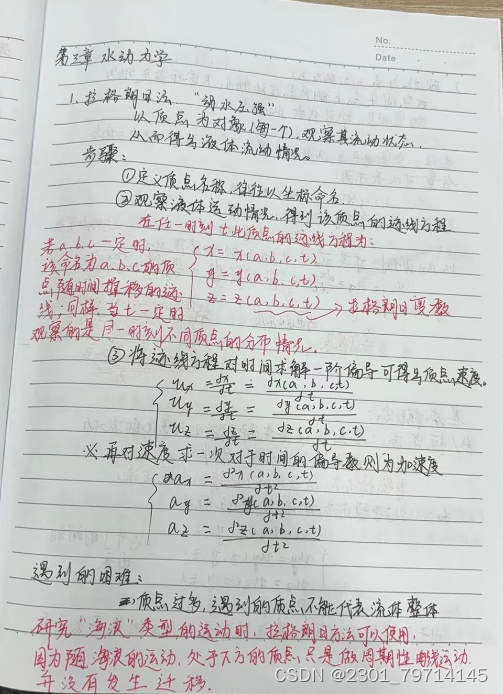 No.
Date
第三章 水动力学
1. 拉格朗日法 "动水压强"
以质点为对象(每一个),观察其流动状态,
从而得出液体流动情况。
步骤:
①定义质点名称,往往以坐标命名.
②观察液体运动情况,得到该质点的迹线方程
在任一时刻t此质点的迹线方程为:
若a,b,c一定时,
该命名为a,b,c的质
点,随时间推移的迹
线;同样,当t一定时
观察的是同一时刻不同质点的分布情况。
x = x(a,b,c,t)
y = y(a,b,c,t)
z = z(a,b,c,t) → 拉格朗日函数
③ 将迹线方程对时间求解一阶偏导可得出质点速度。
ux = ∂x/∂t = ∂x(a,b,c,t)/∂t
uy = ∂y/∂t = ∂y(a,b,c,t)/∂t
uz = ∂z/∂t = ∂z(a,b,c,t)/∂t
※ 再对速度求一次对于时间的偏导数则为加速度
ax = ∂²x(a,b,c,t)/∂t²
ay = ∂²y(a,b,c,t)/∂t²
az = ∂²z(a,b,c,t)/∂t²
遇到的困难:
⇒ 质点过多,遇到的质点不能代表流体整体
研究"海浪"类型的运动时,拉格朗日方法可以使用,
因为海浪的运动,处于下方的质点只是做周期性曲线运动.
并没有发生迁移.
CSDN @2301_79714145